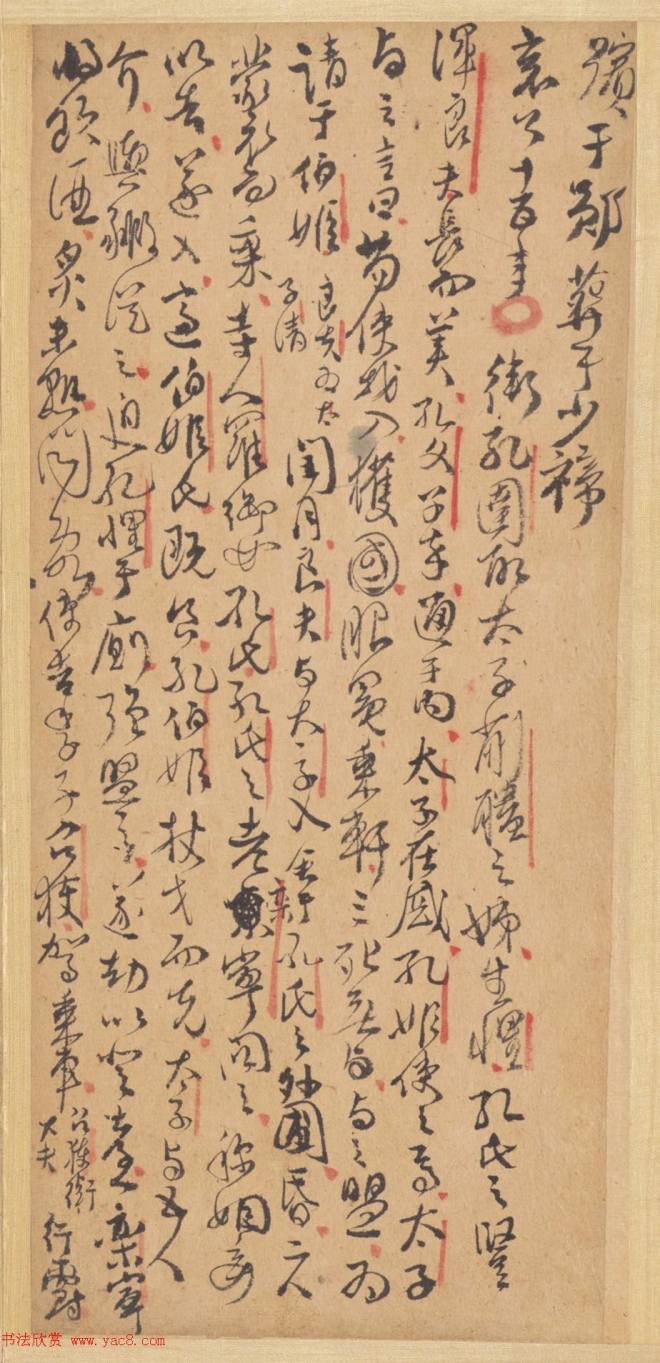 殯于鄖葬于少禘
哀公十五年 衛孔圉取太子蒯聵之姊生悝孔氏之豎
渾良夫長而美孔文子卒通于內太子在戚孔姬使之焉太子
與之言曰苟使我入獲國服冕乘軒三死無與與之盟為
請于伯姬 良夫為太子請 閏月良夫與太子入舍於孔氏之外圃昏二人
蒙衣而乘寺人羅御如孔氏孔氏之老欒寧問之稱姻妾
以告遂入適伯姬氏既食孔伯姬杖戈而先太子與五人
介輿豭從之迫孔悝于廁強盟之遂劫以登臺欒寧
將飲酒炙未熟聞亂使告季子召獲駕乘車 召獲衛大夫 行爵
书法欣赏 www.yac8.com